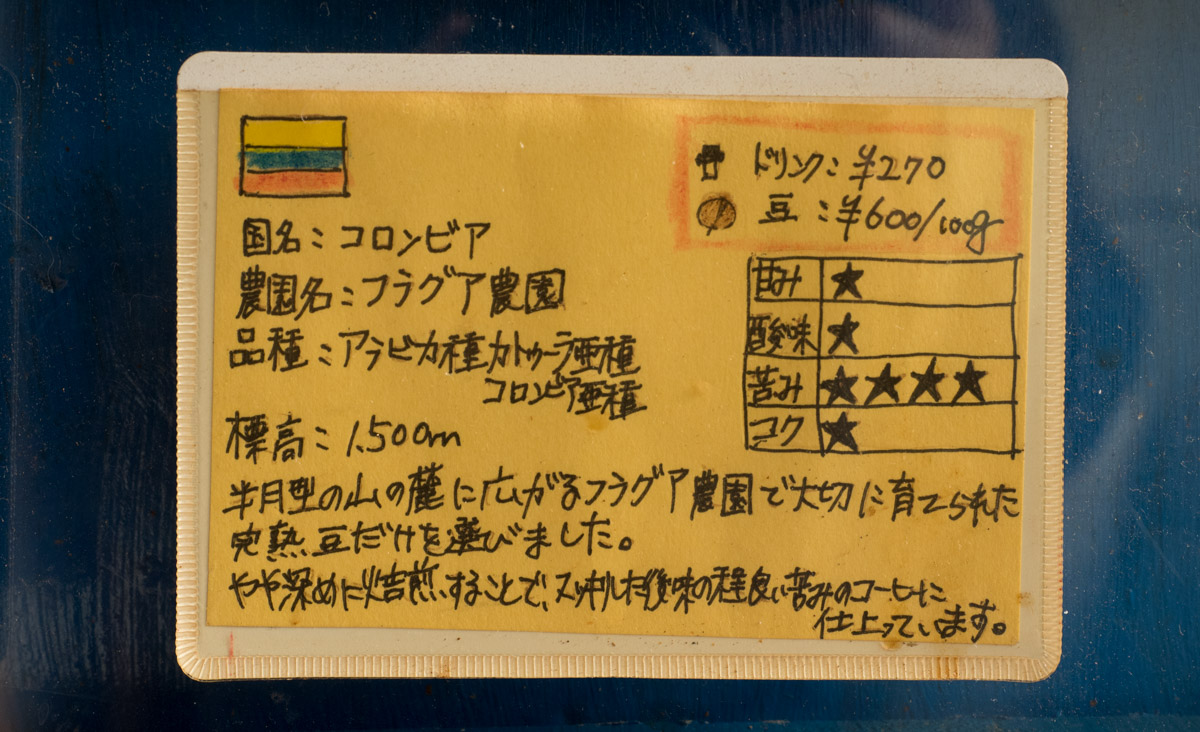 ドリンク：¥270
豆：¥600/100g
国名：コロンビア
農園名：フラグア農園
品種：アラビカ種 カトゥーラ亜種
コロンビア亜種
標高：1,500m
甘み ★
酸味 ★
苦み ★★★★
コク ★
半月型の山の麓に広がるフラグア農園で大切に育てられた
完熟豆だけを選びました。
やや深めに焙煎することで、スッキリした後味の程良い苦みのコーヒーに
仕上っています。